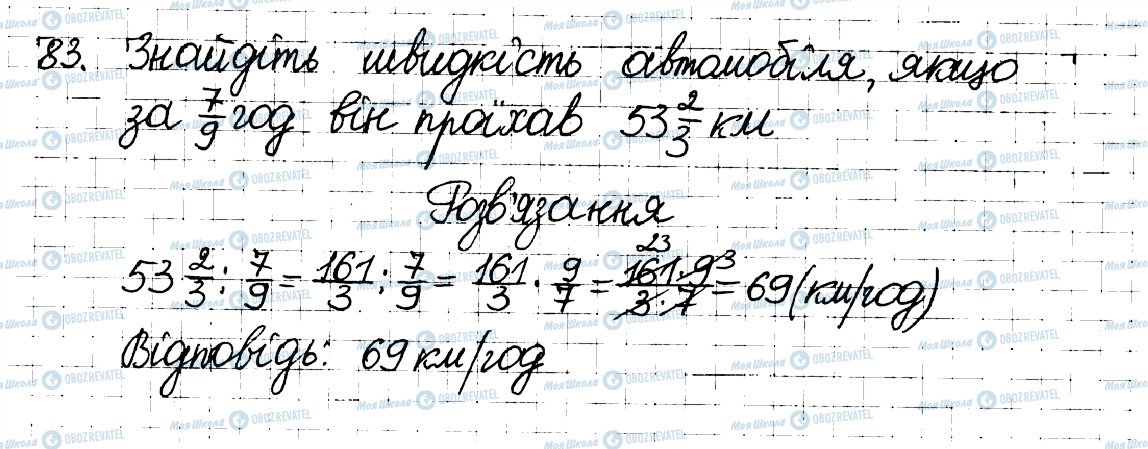 83. Знайдіть швидкість автомобіля, якщо
за 7/9 год він проїхав 53 2/3 км
Розв'язання
53 2/3 : 7/9 = 161/3 : 7/9 = 161/3 · 9/7 = 161·9/3·7 = 69 (км/год)
23 3
Відповідь: 69 км/год
МояШкола OBOZREVATEL